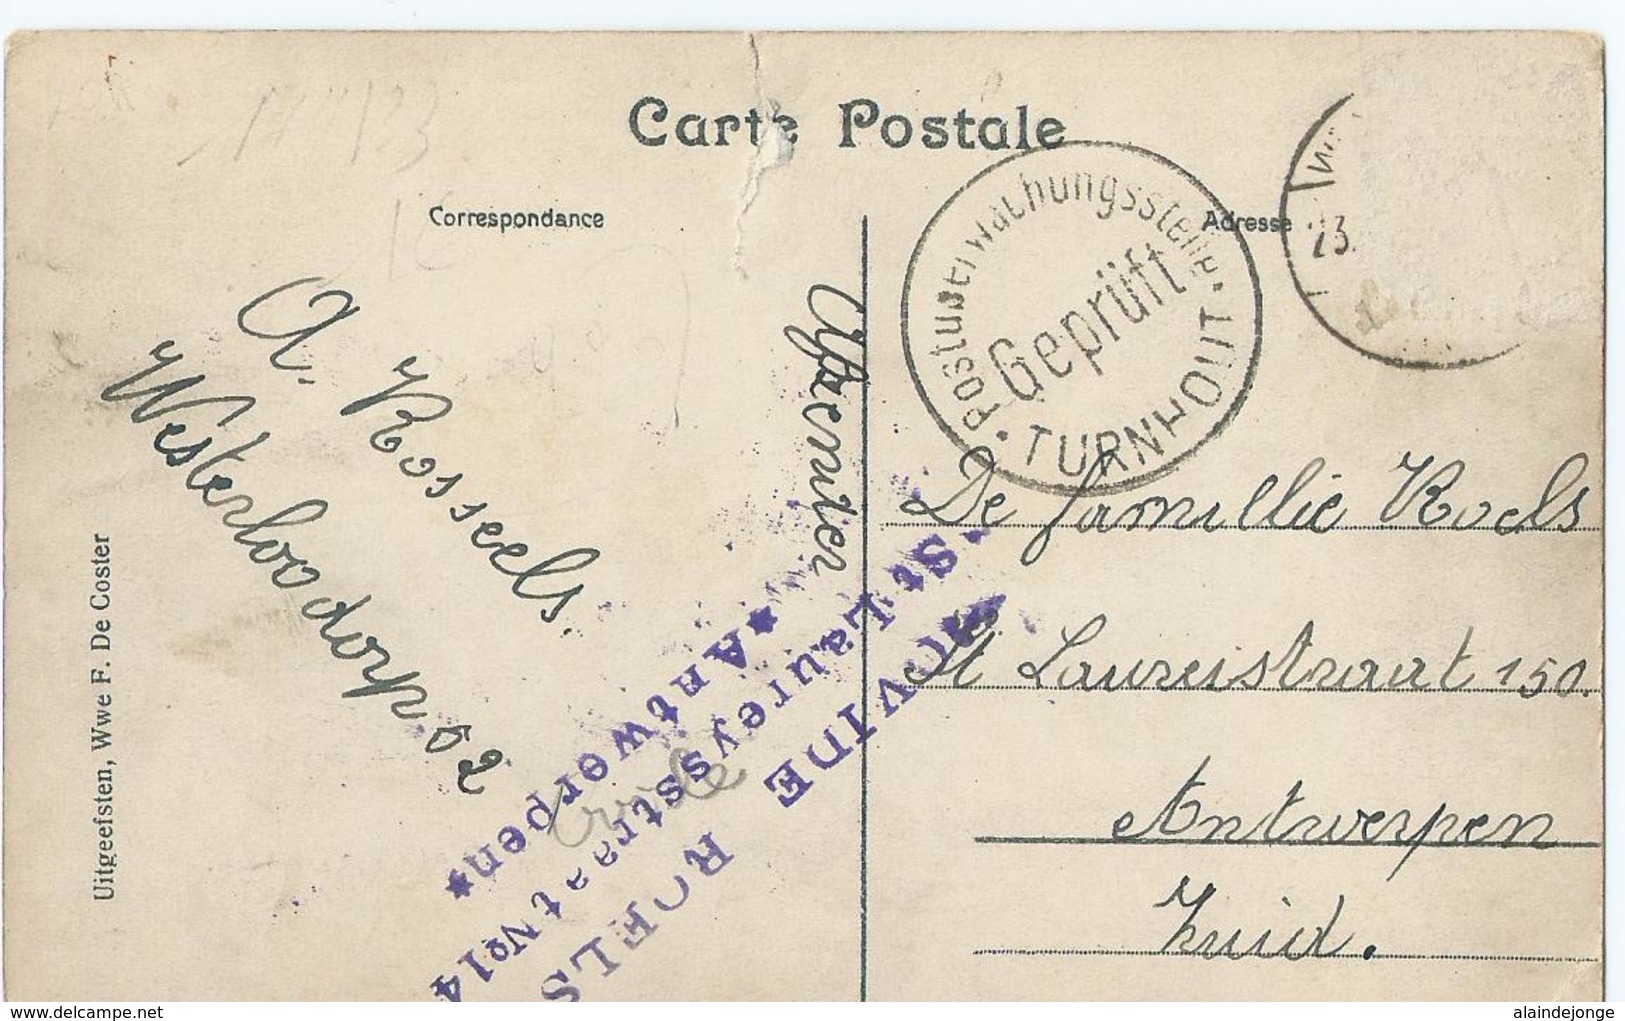 Carte Postale
Correspondance
Adresse
Postüberwachungsstelle
Geprüft
TURNHOUT
23.
A. Rosseels.
Westerloo dorp 52
Afzender
De famillie Roels
St Laureistraat 150.
Antwerpen
Zuid.
ROELS
St Laureysstraat No 14
*Antwerpen*
Uitgeefsten, Wwe F. De Coster
www.delcampe.net
alaindejonge